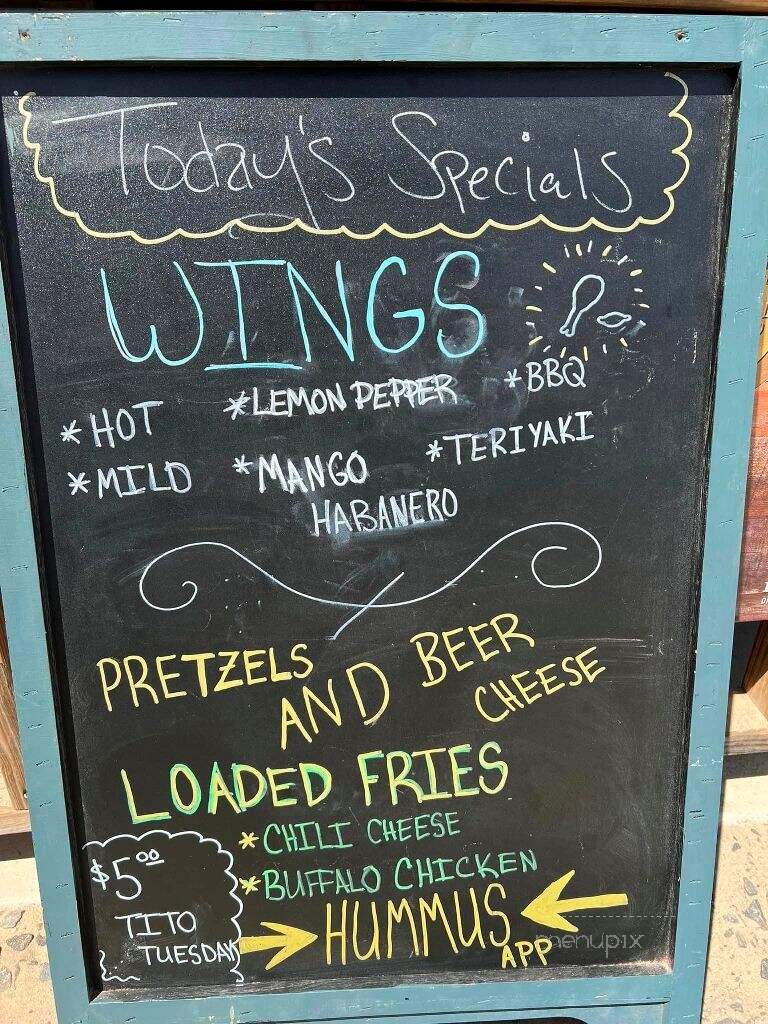 Today's Specials
WINGS
*HOT *LEMON PEPPER *BBQ
*MILD *MANGO HABANERO *TERIYAKI
PRETZELS AND BEER CHEESE
LOADED FRIES
*CHILI CHEESE
*BUFFALO CHICKEN
$5.00
TITO
TUESDAY
HUMMUS
APP
menupix